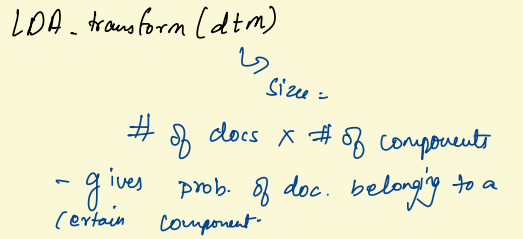 LDA_transform (dtm)
Size =
# of docs x # of components
- gives prob. of doc. belonging to a
certain component.